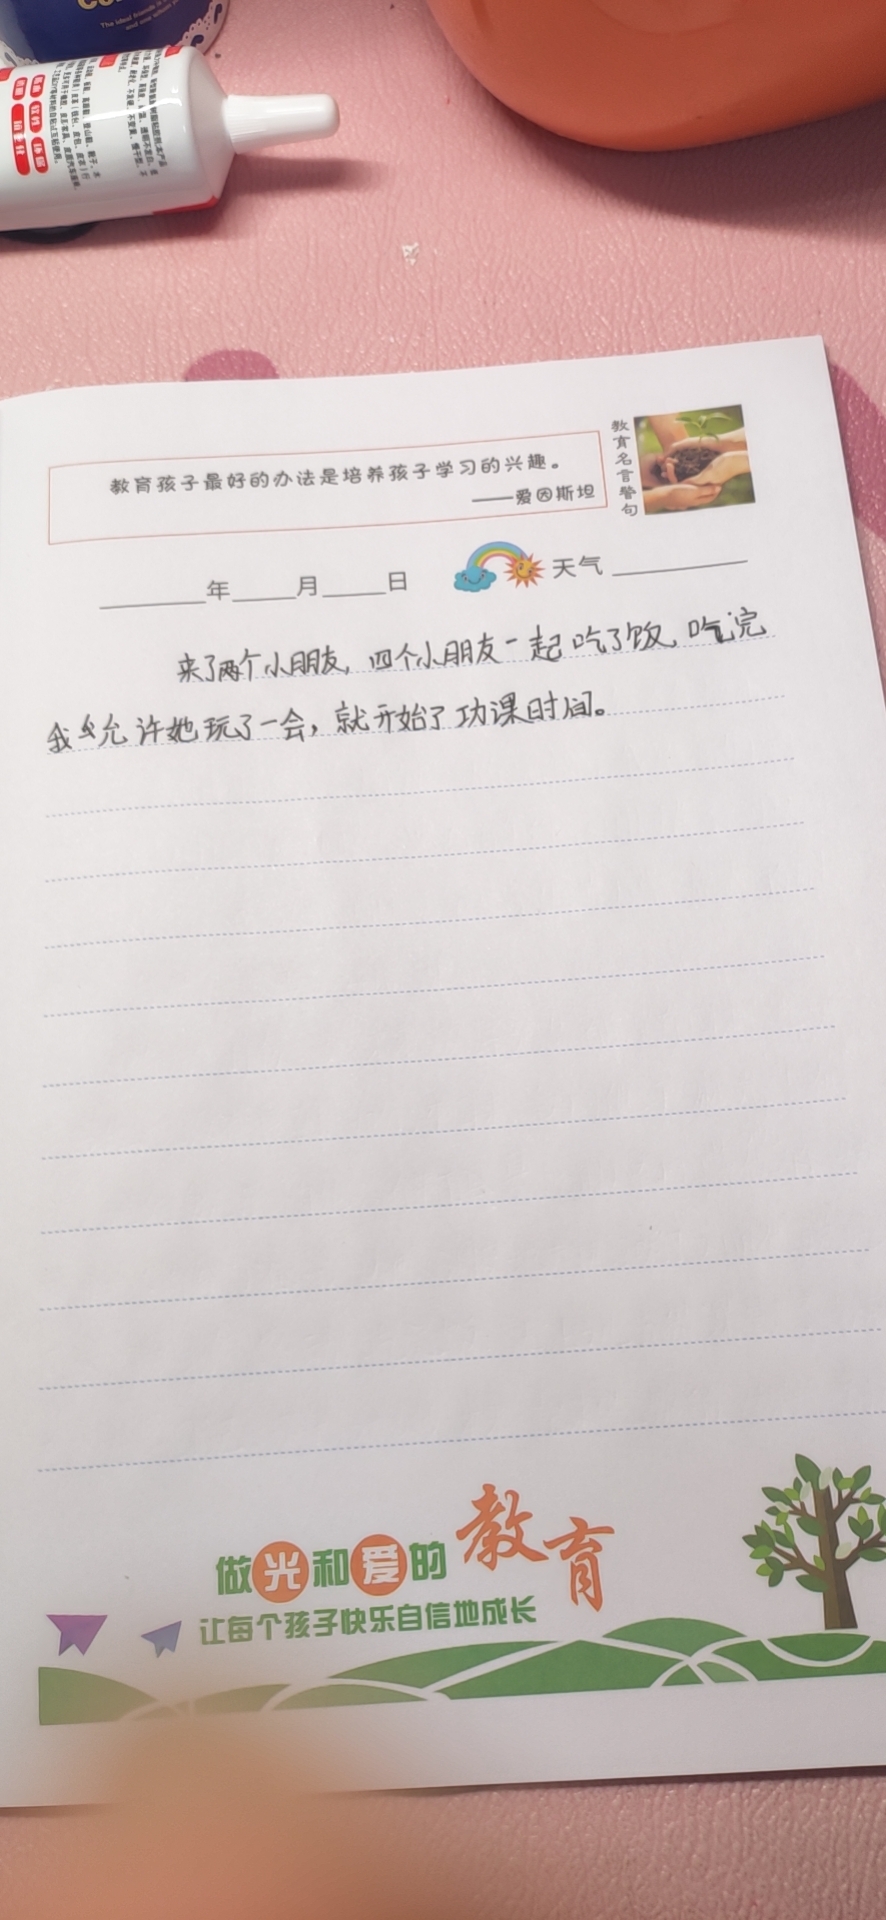 The ideal friends is
教育孩子最好的办法是培养孩子学习的兴趣。
——爱因斯坦
教育名言警句
年 月 日 天气
来了两个小朋友,四个小朋友一起吃了饭,吃完
我允许她玩了一会,就开始了功课时间。
做光和爱的教育
让每个孩子快乐自信地成长